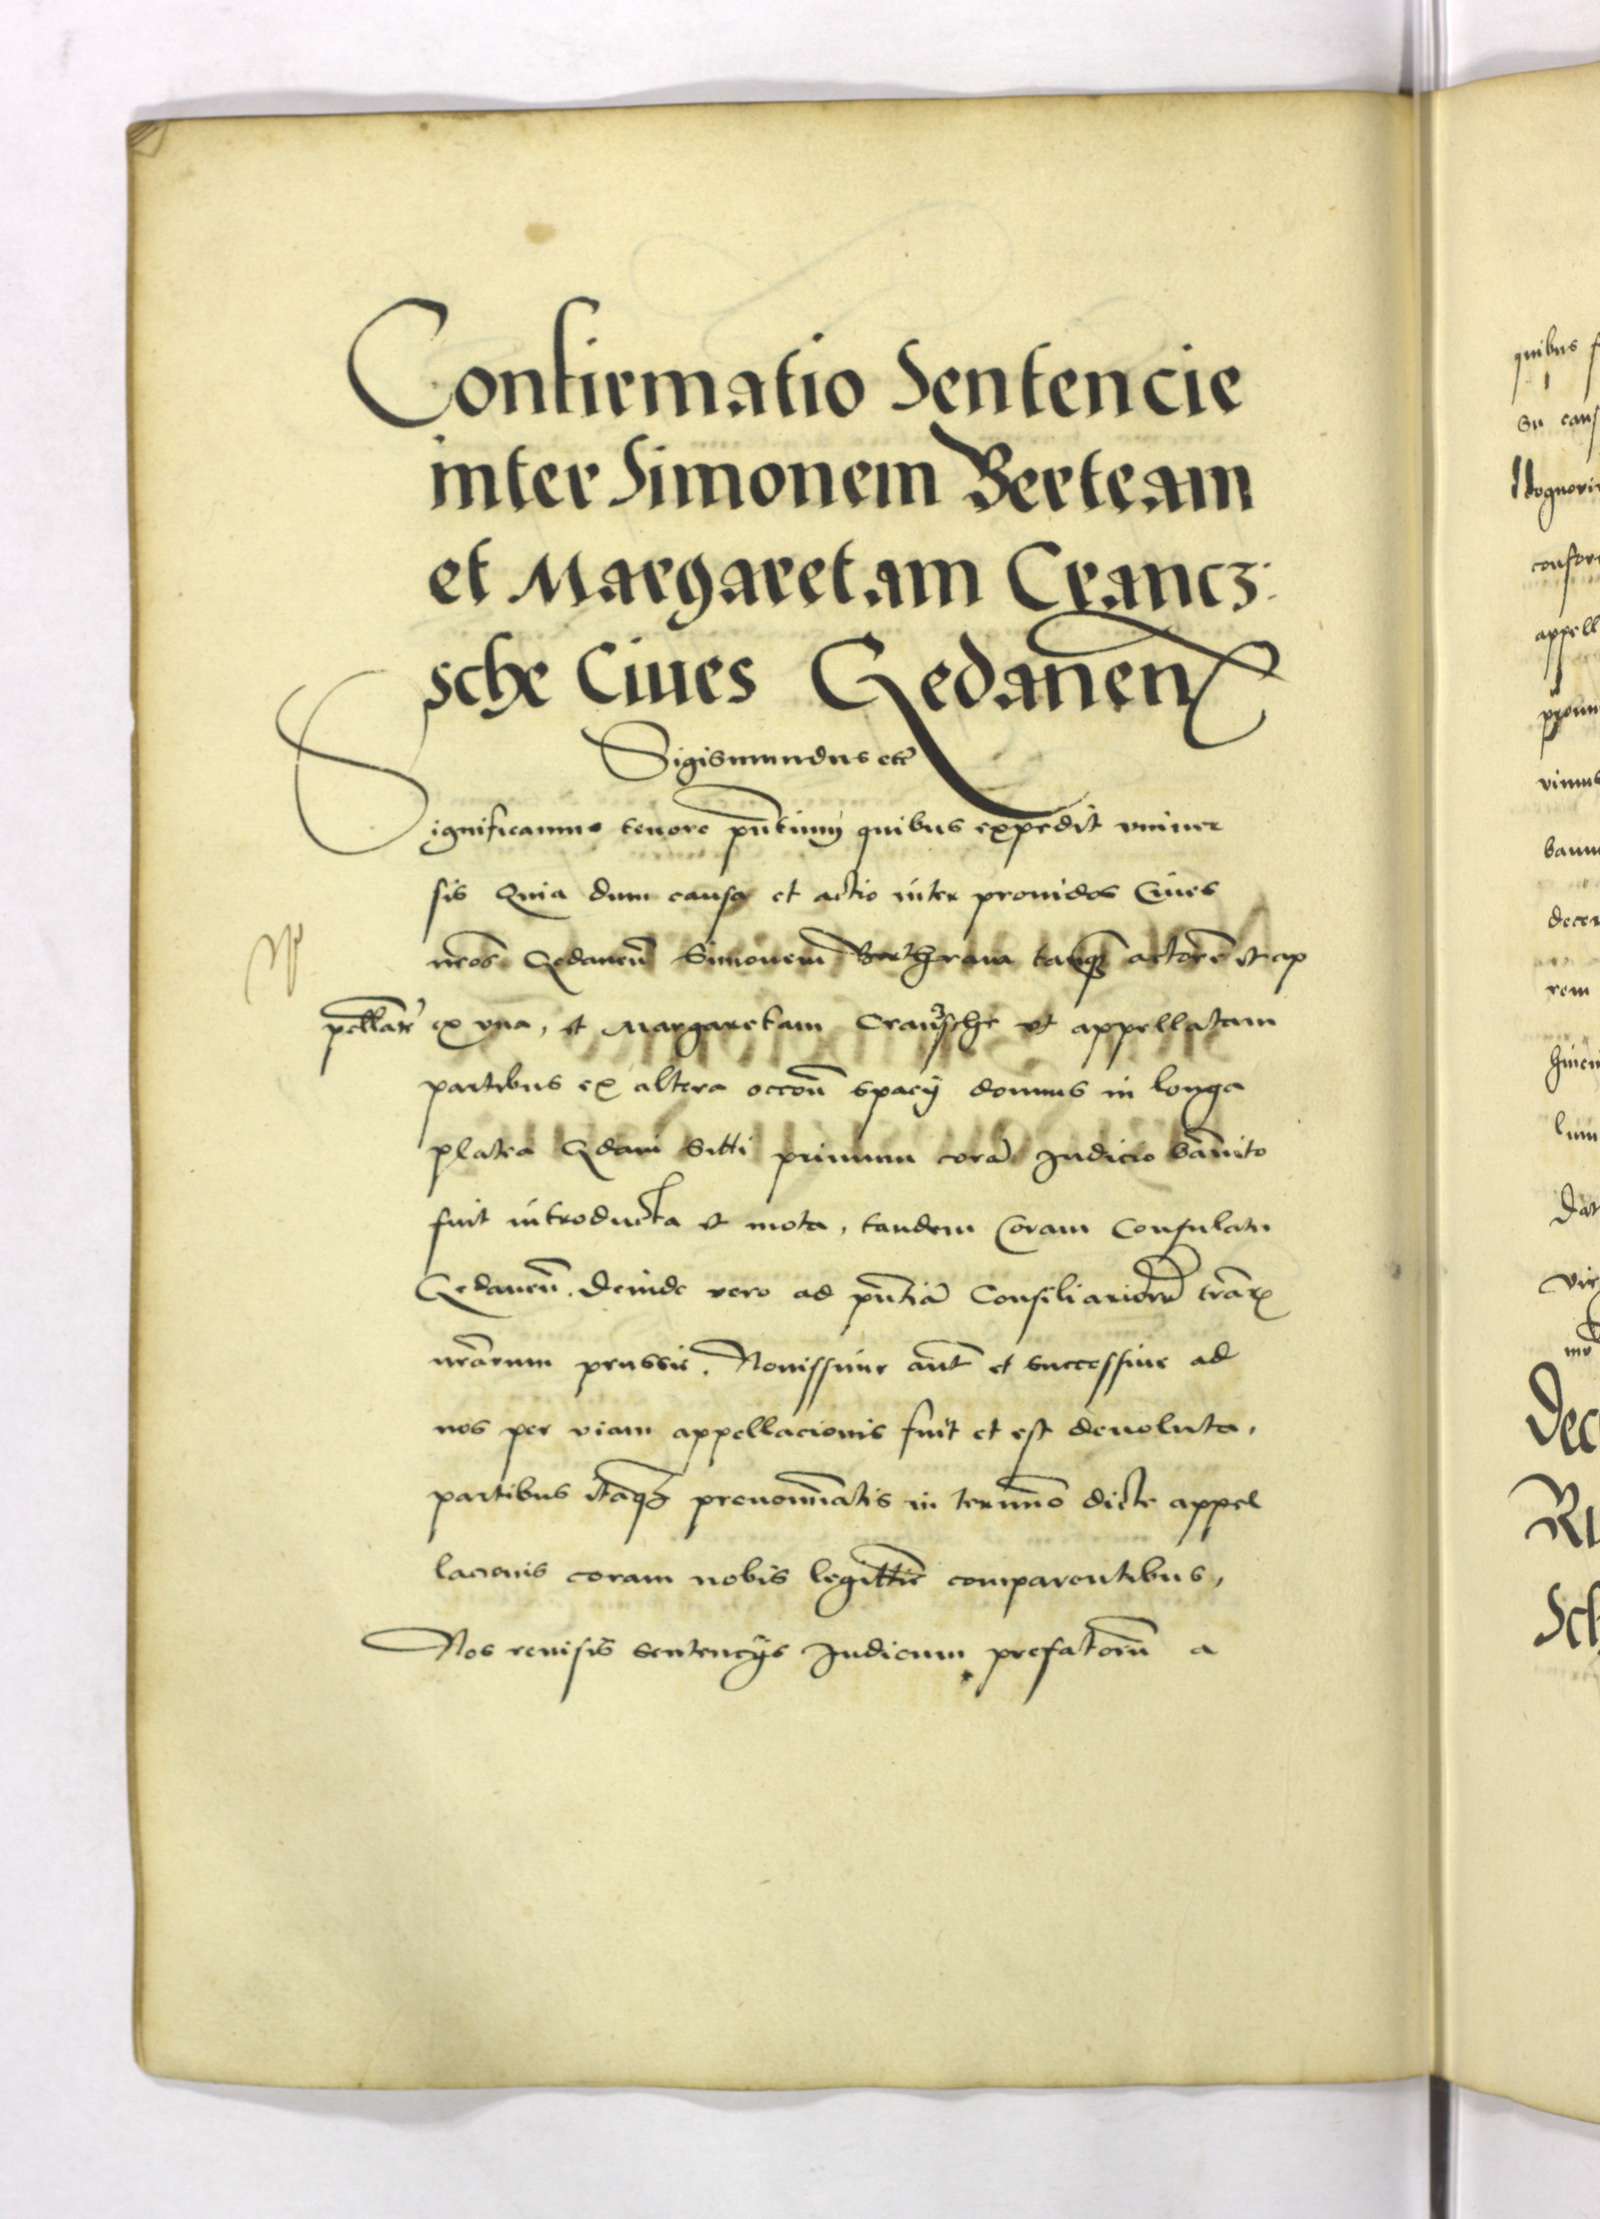 Confirmatio Sentencie
inter Simonem Berteam
et Margaretam Crancz:
sche Ciues Gedanen̄
Sigismundus etc̄
Significamus tenore pñtium quibus expedit vniuer
sis Quia dum causa et actio inter prouidos Ciues
nr̄os Gedaneñ Simonem tanq̄ȝ actorē et ap
pellatē ex vna, et Margaretam Cranczsche vt appellatam
partibus ex altera occoñ spacij domus in longa
platea Gdani Sitti primum corā Judicio bānito
fuit introducta et mota, tandem Coram Consulatu
Gedaneñ. Deinde vero ad pñtiā Consiliariorū tr̄arꝫ
nr̄arum prussie. Nouissime aut̄ et successiue ad
nos per viam appellacionis fuit et est deuoluta,
partibus itaqꝫ prenoīatis in termīo dicte appel
lacionis coram nobis legittīe comparentibus,
Nos reuisis sentencijs Judicum prefatorū a
quibus
su caus
appell
vimus
rem
lum
Dat
Dec
Ru
Sch